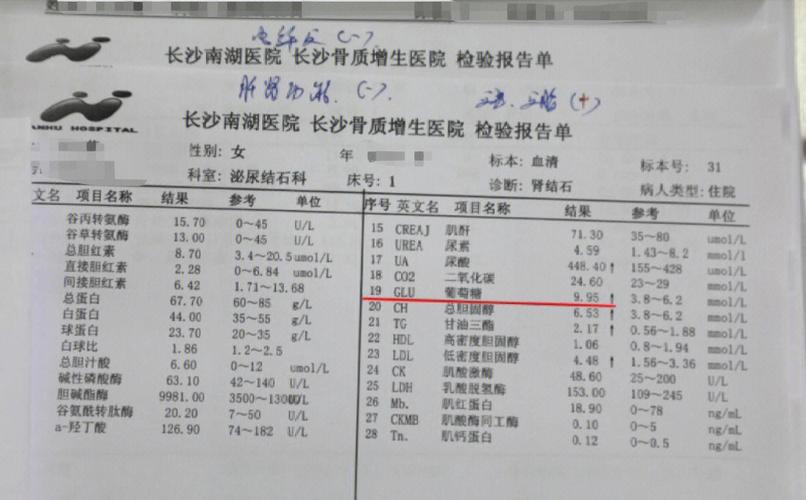 长沙南湖医院 长沙骨质增生医院 检验报告单
肝肾功能 (-).
(+)
ANHU HOSPITAL
长沙南湖医院 长沙骨质增生医院 检验报告单
性别: 女 年 标本: 血清 标本号: 31
科室: 泌尿结石科 床号: 1 诊断: 肾结石 病人类型: 住院
文名 项目名称 结果 参考 单位
谷丙转氨酶 15.70 0~45 U/L
谷草转氨酶 13.00 0~45 U/L
总胆红素 8.70 3.4~20.5 umol/L
直接胆红素 2.28 0~6.84 umol/L
间接胆红素 6.42 1.71~13.68
总蛋白 67.70 60~85 g/L
白蛋白 44.00 35~55 g/L
球蛋白 23.70 20~35 g/L
白球比 1.86 1.2~2.5
总胆汁酸 6.60 0~12 umol/L
碱性磷酸酶 63.10 42~140 U/L
胆碱酯酶 9981.00 3500~13000 U/L
谷氨酰转肽酶 20.20 7~50 U/L
a-羟丁酸 126.90 74~182 U/L
序号 英文名 项目名称 结果 参考 单位
15 CREAJ 肌酐 71.30 35~80 umol/L
16 UREA 尿素 4.59 1.43~8.2 mmol/l
17 UA 尿酸 448.40 ↑ 155~428 umol/L
18 CO2 二氧化碳 24.60 23~29 mmol/L
19 GLU 葡萄糖 9.95 ↑ 3.8~6.2 mmol/L
20 CH 总胆固醇 6.53 ↑ 3.8~6.2 mmol/L
21 TG 甘油三酯 2.17 ↑ 0.56~1.88 mmol/L
22 HDL 高密度胆固醇 1.06 0.8~1.94 mmol/L
23 LDL 低密度胆固醇 4.48 ↑ 1.56~3.36 mmol/L
24 CK 肌酸激酶 48.60 25~200 U/L
25 LDH 乳酸脱氢酶 153.00 109~245 U/L
26 Mb. 肌红蛋白 18.90 0~78 ng/mL
27 CKMB 肌酸酶同工酶 0.10 0~5 ng/mL
28 Tn. 肌钙蛋白 0.12 0~0.5 ng/mL